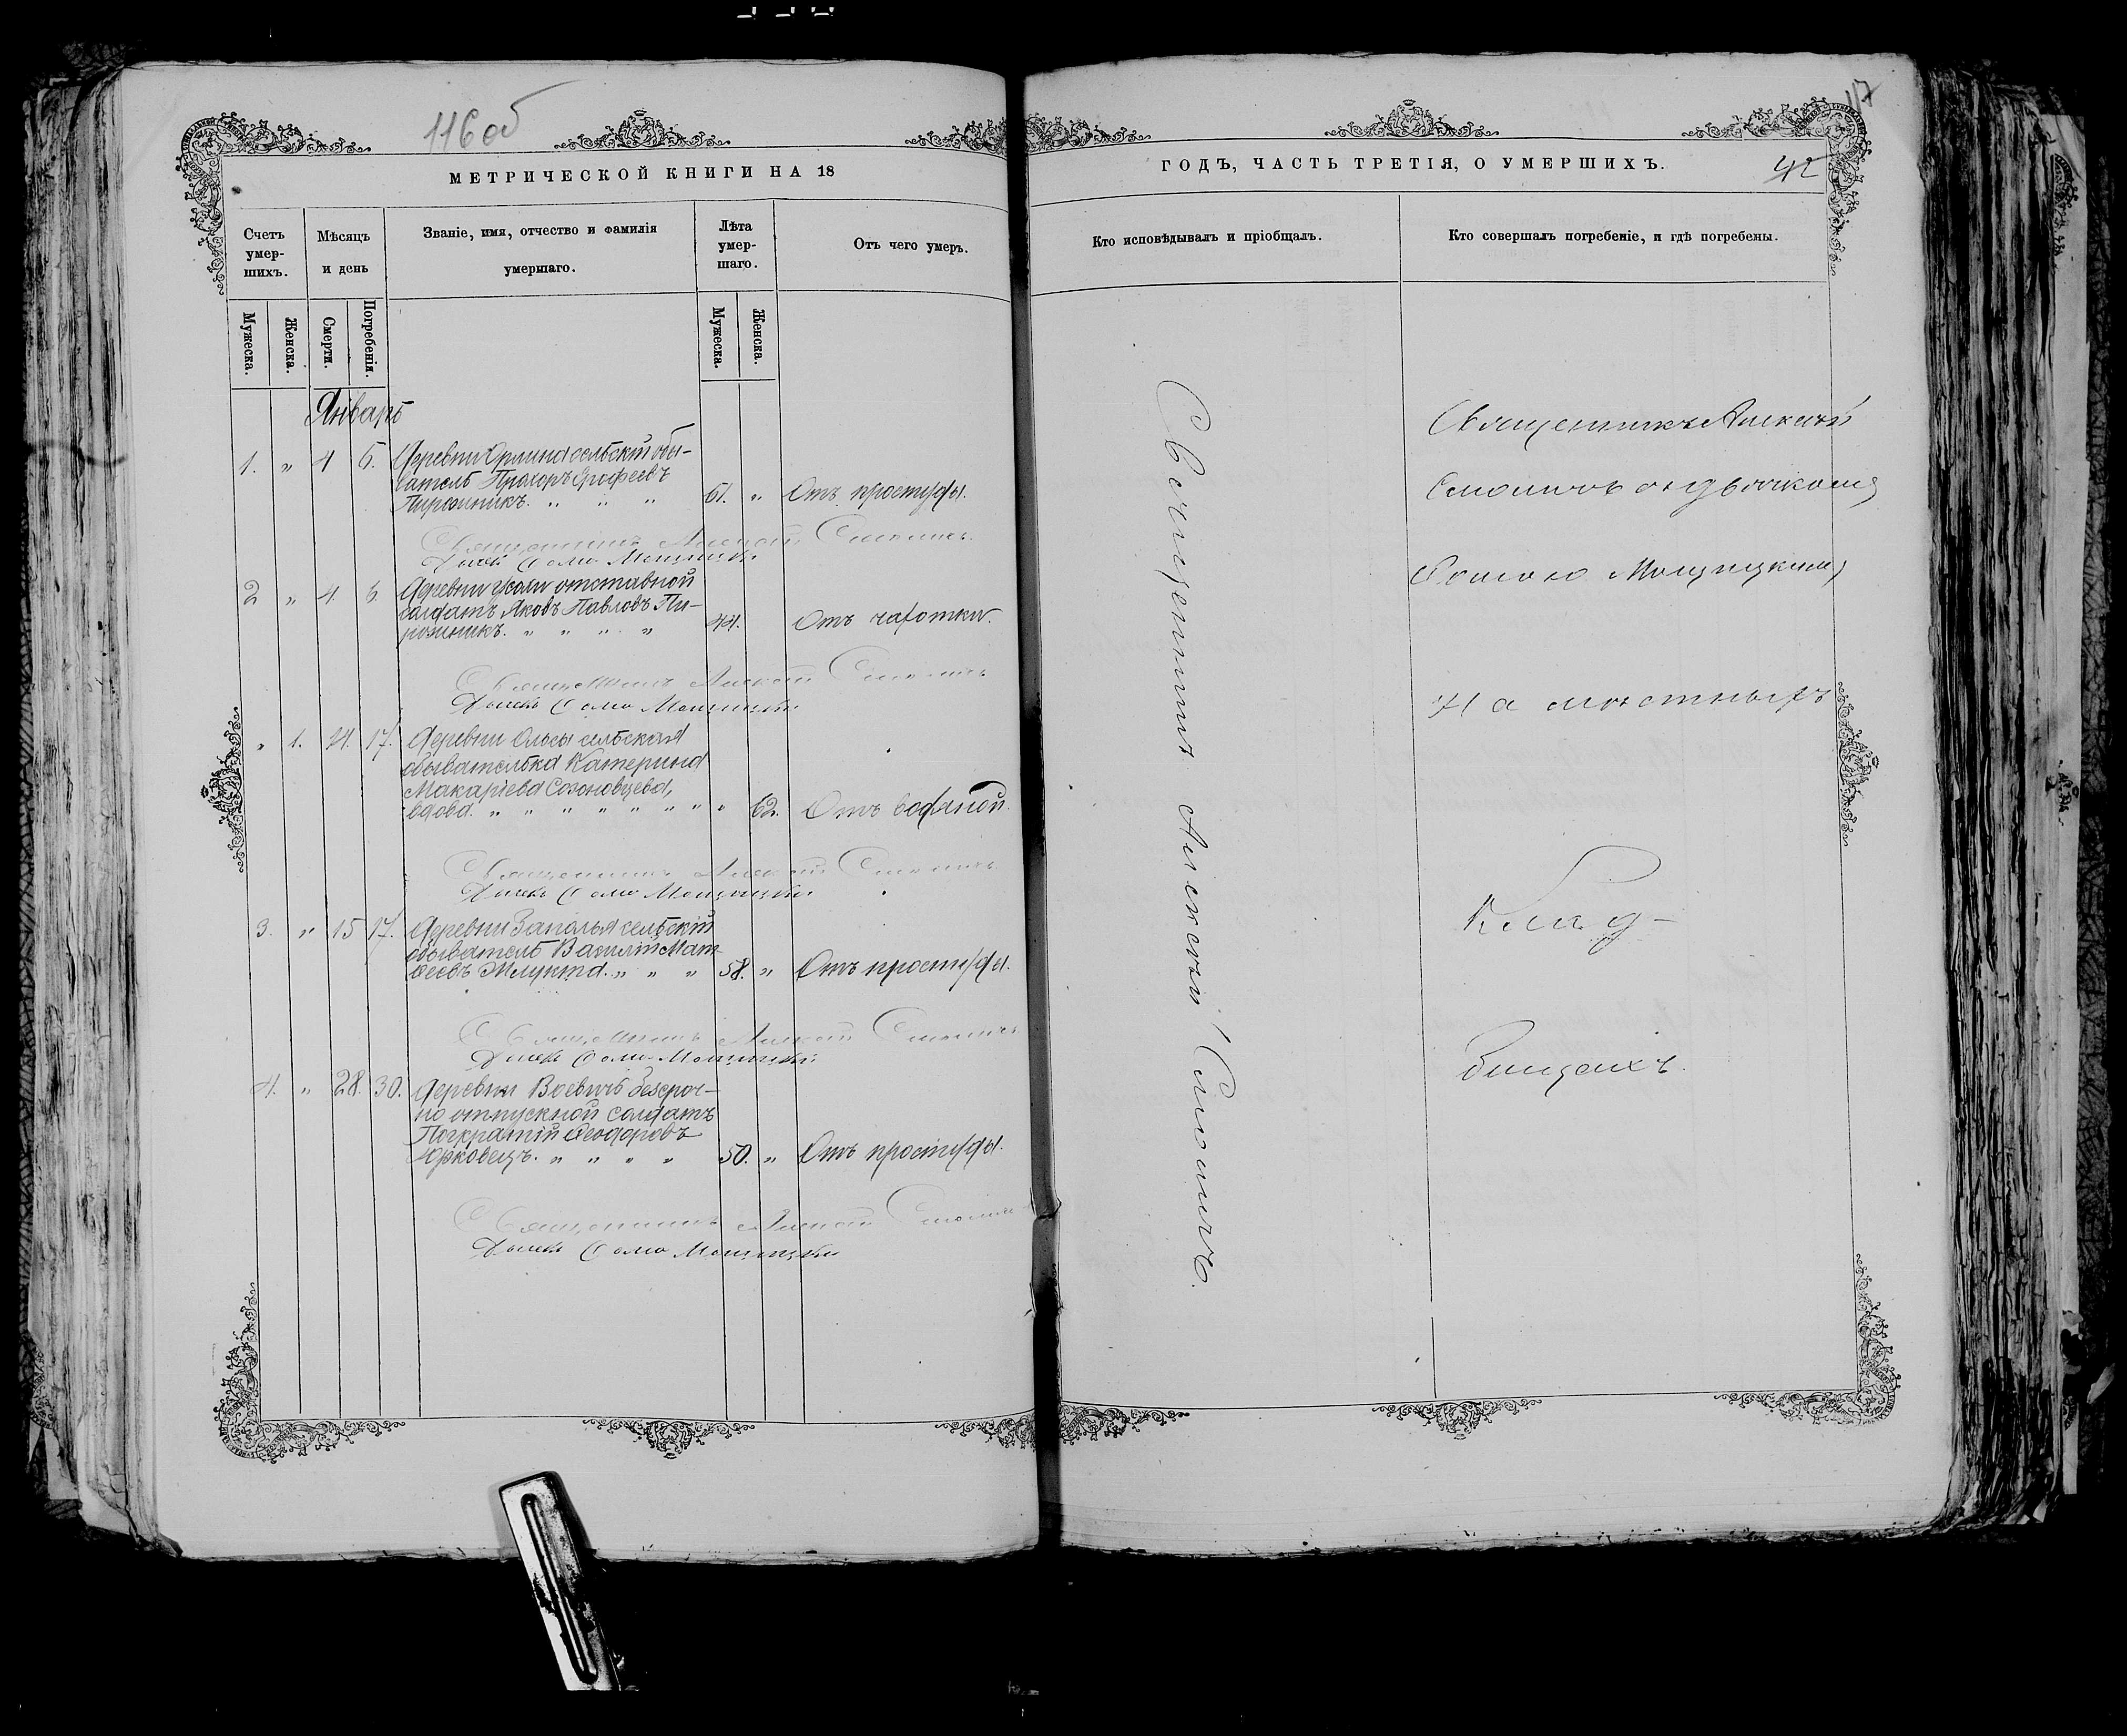 116 об
МЕТРИЧЕСКОЙ КНИГИ НА 18
Счетъ умер-шихъ.
Мѣсяцъ и день
Званіе, имя, отчество и фамилія умершаго.
Лѣта умер-шаго.
Отъ чего умеръ.
Мужеска.
Женска.
Смерти.
Погребенія.
Мужеска.
Женска.
Январь
1. " 4 6. Деревни сельскій обы-
ватель Прохоръ Ерофеевъ
Пирожникъ. " " " 61. " Отъ простуды.
Священникъ Алексій Смоличъ
Дьячекъ Фома Мощицкій
2 " 4. 6. Деревни отставной
солдатъ Яковъ Павловъ Пи-
рожникъ. " " " " 44. Отъ чахотки.
Священникъ Алексій Смоличъ
Дьячекъ Фома Мощицкій
" 1. 14. 17. Деревни Ольсы сельская
обывателька Катерина
Макаріева Созоновцева,
вдова. " " " " " " " 62. Отъ водяной.
Священникъ Алексій Смоличъ
Дьячекъ Фома Мощицкій
3. " 15 17. Деревни Заполья сельскій
обыватель Василій Мат-
ѳеевъ Жлукта. " " " 58. " Отъ простуды.
Священникъ Алексій Смоличъ
Дьячекъ Фома Мощицкій
4. " 28. 30. Деревни Воевичъ безсроч-
но отпускной солдатъ
Панкратій Ѳеодоровъ
Юрковецъ. " " " " 50. " Отъ простуды.
Священникъ Алексій Смоличъ
Дьячекъ Фома Мощицкій
117
ГОДЪ, ЧАСТЬ ТРЕТІЯ, О УМЕРШИХЪ.
42
Кто исповѣдывалъ и пріобщалъ.
Кто совершалъ погребеніе, и гдѣ погребены.
Священникъ Алексѣй Смоличъ.
Священникъ Алексѣй
Смоличъ съ дьячкомъ
Фомою Мощицкимъ
На мѣстныхъ
Клад-
бищахъ.